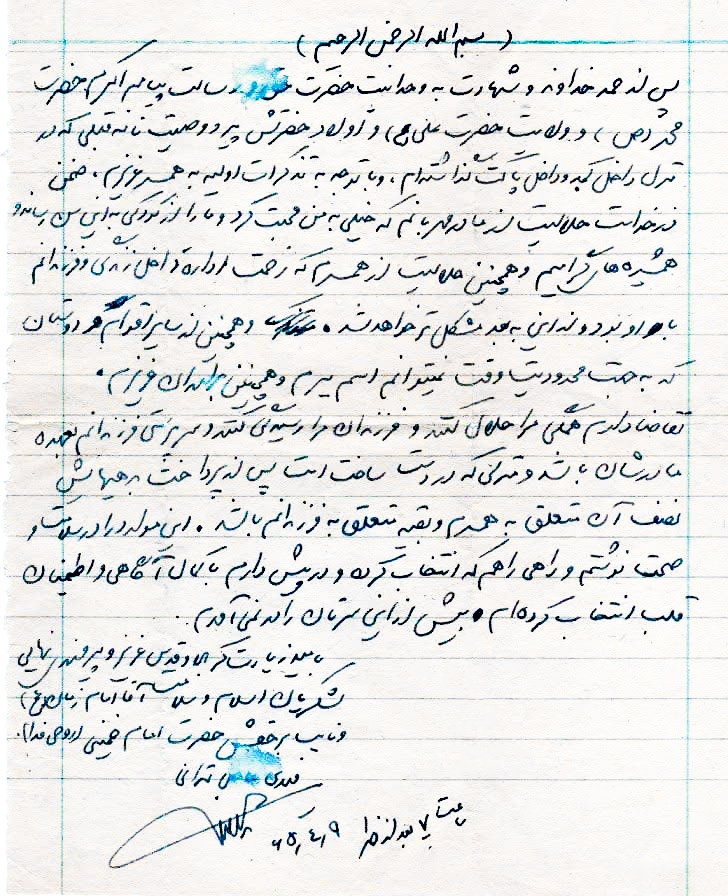 (بسم الله الرحمن الرحیم)
پس از حمد خداوند و شهادت به وحدانیت حضرت حق و رسالت پیامبر اکرم حضرت
محمد (ص) و ولایت حضرت علی (ع) و اولاد حضرتش پیرو وصیت نامه قبلی که در
منزل داخل کمد و داخل پاکت گذاشته‌ام، و با توجه به تذکرات اولیه به همسر عزیزم، ضمن
درخواست حلالیت از مادر مهربانم که خیلی به من محبت کرد و ما را از کودکی به این سن رساند و
همشیره‌های گرامیم و همچنین حلالیت از همسرم که زحمت اداره داخل زندگی و فرزندانم
با او بود و از این به بعد مشکل‌تر خواهد شد. و همچنین از سایر اقوام و دوستان
که به جهت محدودیت وقت نمیتوانم اسم ببرم و همچنین برادران عزیزم.
تقاضا دارم همگی مرا حلال کنند و فرزندان مرا رسیدگی کنند و سرپرستی فرزندانم بعهده
مادرشان باشد و منزلی که در دست ساخت است پس از پرداخت بدهیهایش
نصف آن متعلق به همسرم و بقیه متعلق به فرزندانم باشد. این موارد را در سلامت و
صحت نوشتم و راهی را هم که انتخاب کرده و در پیش دارم با کمال آگاهی و اطمینان
قلب انتخاب کرده‌ام. بیش از این سرتان را درد نمی‌آورم.
بامید زیارت کربلا و قدس عزیز و پیروزی نهایی
لشکریان اسلام و سلامت آقا امام زمان (عج)
و نایب برحقش حضرت امام خمینی (روحی فدا).
تهرانی
ساعت ۷ بعد از ظهر ۶۵,۴,۹